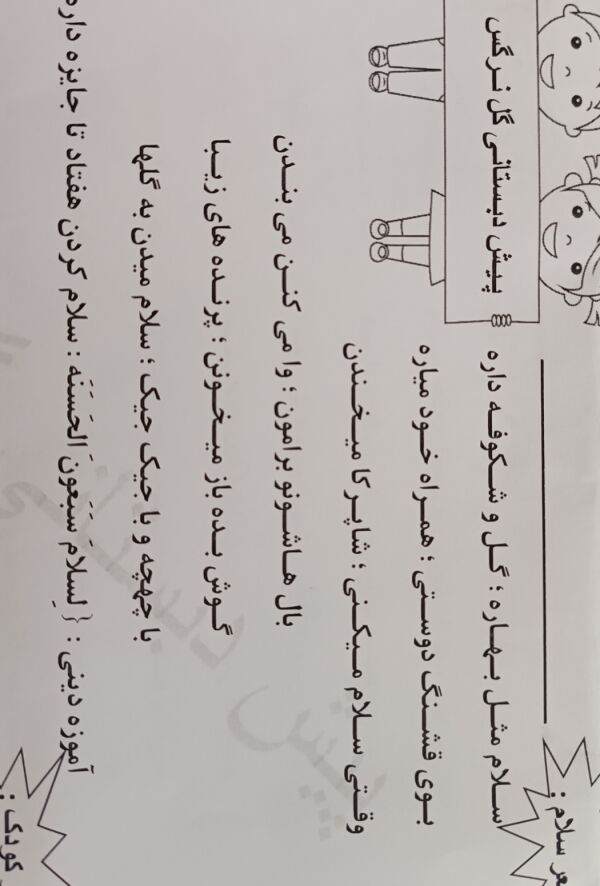 پیش دبستانی گل نرگس
سلام :
سلام مثل بهاره ؛ گل و شکوفه داره
بوی قشنگ دوستی ؛ همراه خود میاره
وقتی سلام میکنی ؛ شاپرکا میخندن
بال هاشونو برامون ؛ وا می کنن می بندن
گوش بده باز میخونن ؛ پرنده های زیبا
با چهچه و با جیک جیک ؛ سلام میدن به گلها
آموزه دینی : { لِسلامِ سَبَعونَ الحَسَنَه : سلام کردن هفتاد تا جایزه داره
کودک :
پیش دبستانی